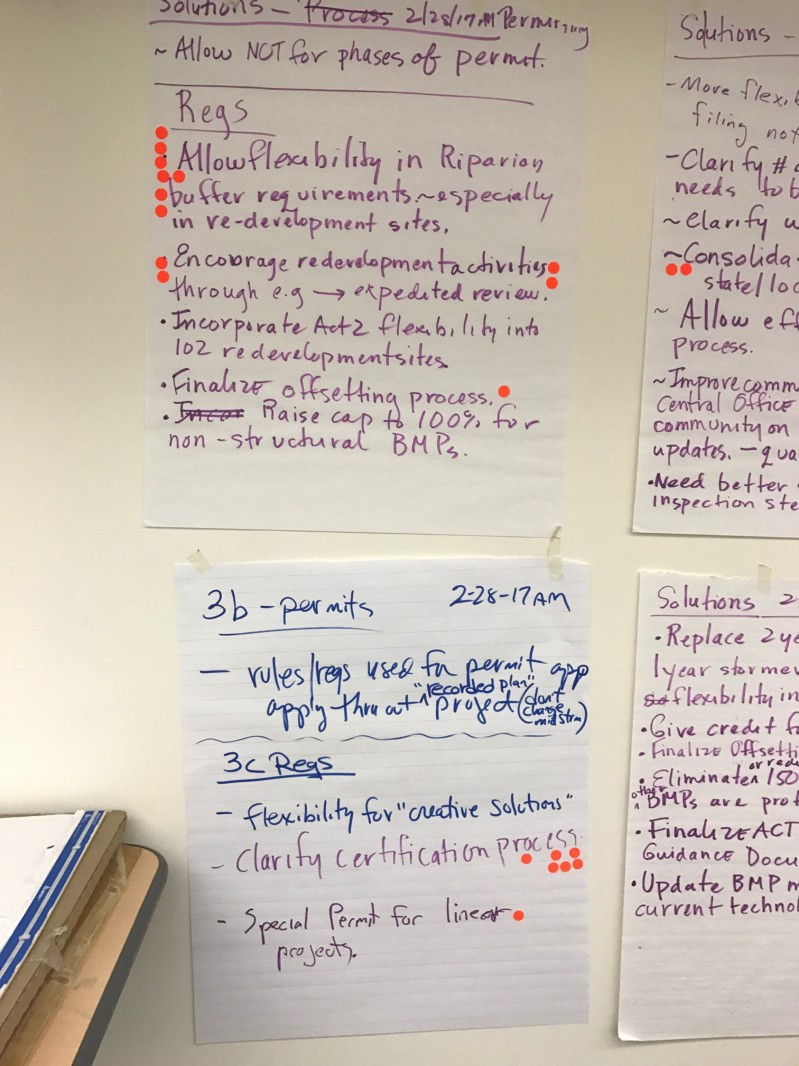 Solutions - Process 2/28/17 AM Permitting
~ Allow NOT for phases of permit.
Regs
· Allow flexibility in Riparian
buffer requirements ~ especially
in re-development sites.
· Encourage redevelopment activities
through e.g → expedited review.
· Incorporate Act 2 flexibility into
102 redevelopment sites
· Finalize offsetting process.
· Incor Raise cap to 100% for
non-structural BMPs.
3b - permits 2-28-17 AM
- rules/regs used for permit app
apply thru out "recorded plan" project (don't change midstrm)
3c Regs
- flexibility for "creative solutions"
- Clarify certification process.
- Special Permit for linear
projects.
Solutions -
- More flexi
filing not
- Clarify #
needs to b
~ Clarify
~ Consolida
state/loc
~ Allow eff
process.
~ Improve comm
Central Office
community on
updates. - qua
· Need better
inspection ste
Solutions 2
· Replace 2 ye
1 year storm ev
flexibility in
· Give credit f
· Finalize Offsetti
or redu
· Eliminate 150
other BMPs are prot
· Finalize ACT
Guidance Docu
· Update BMP m
current technol